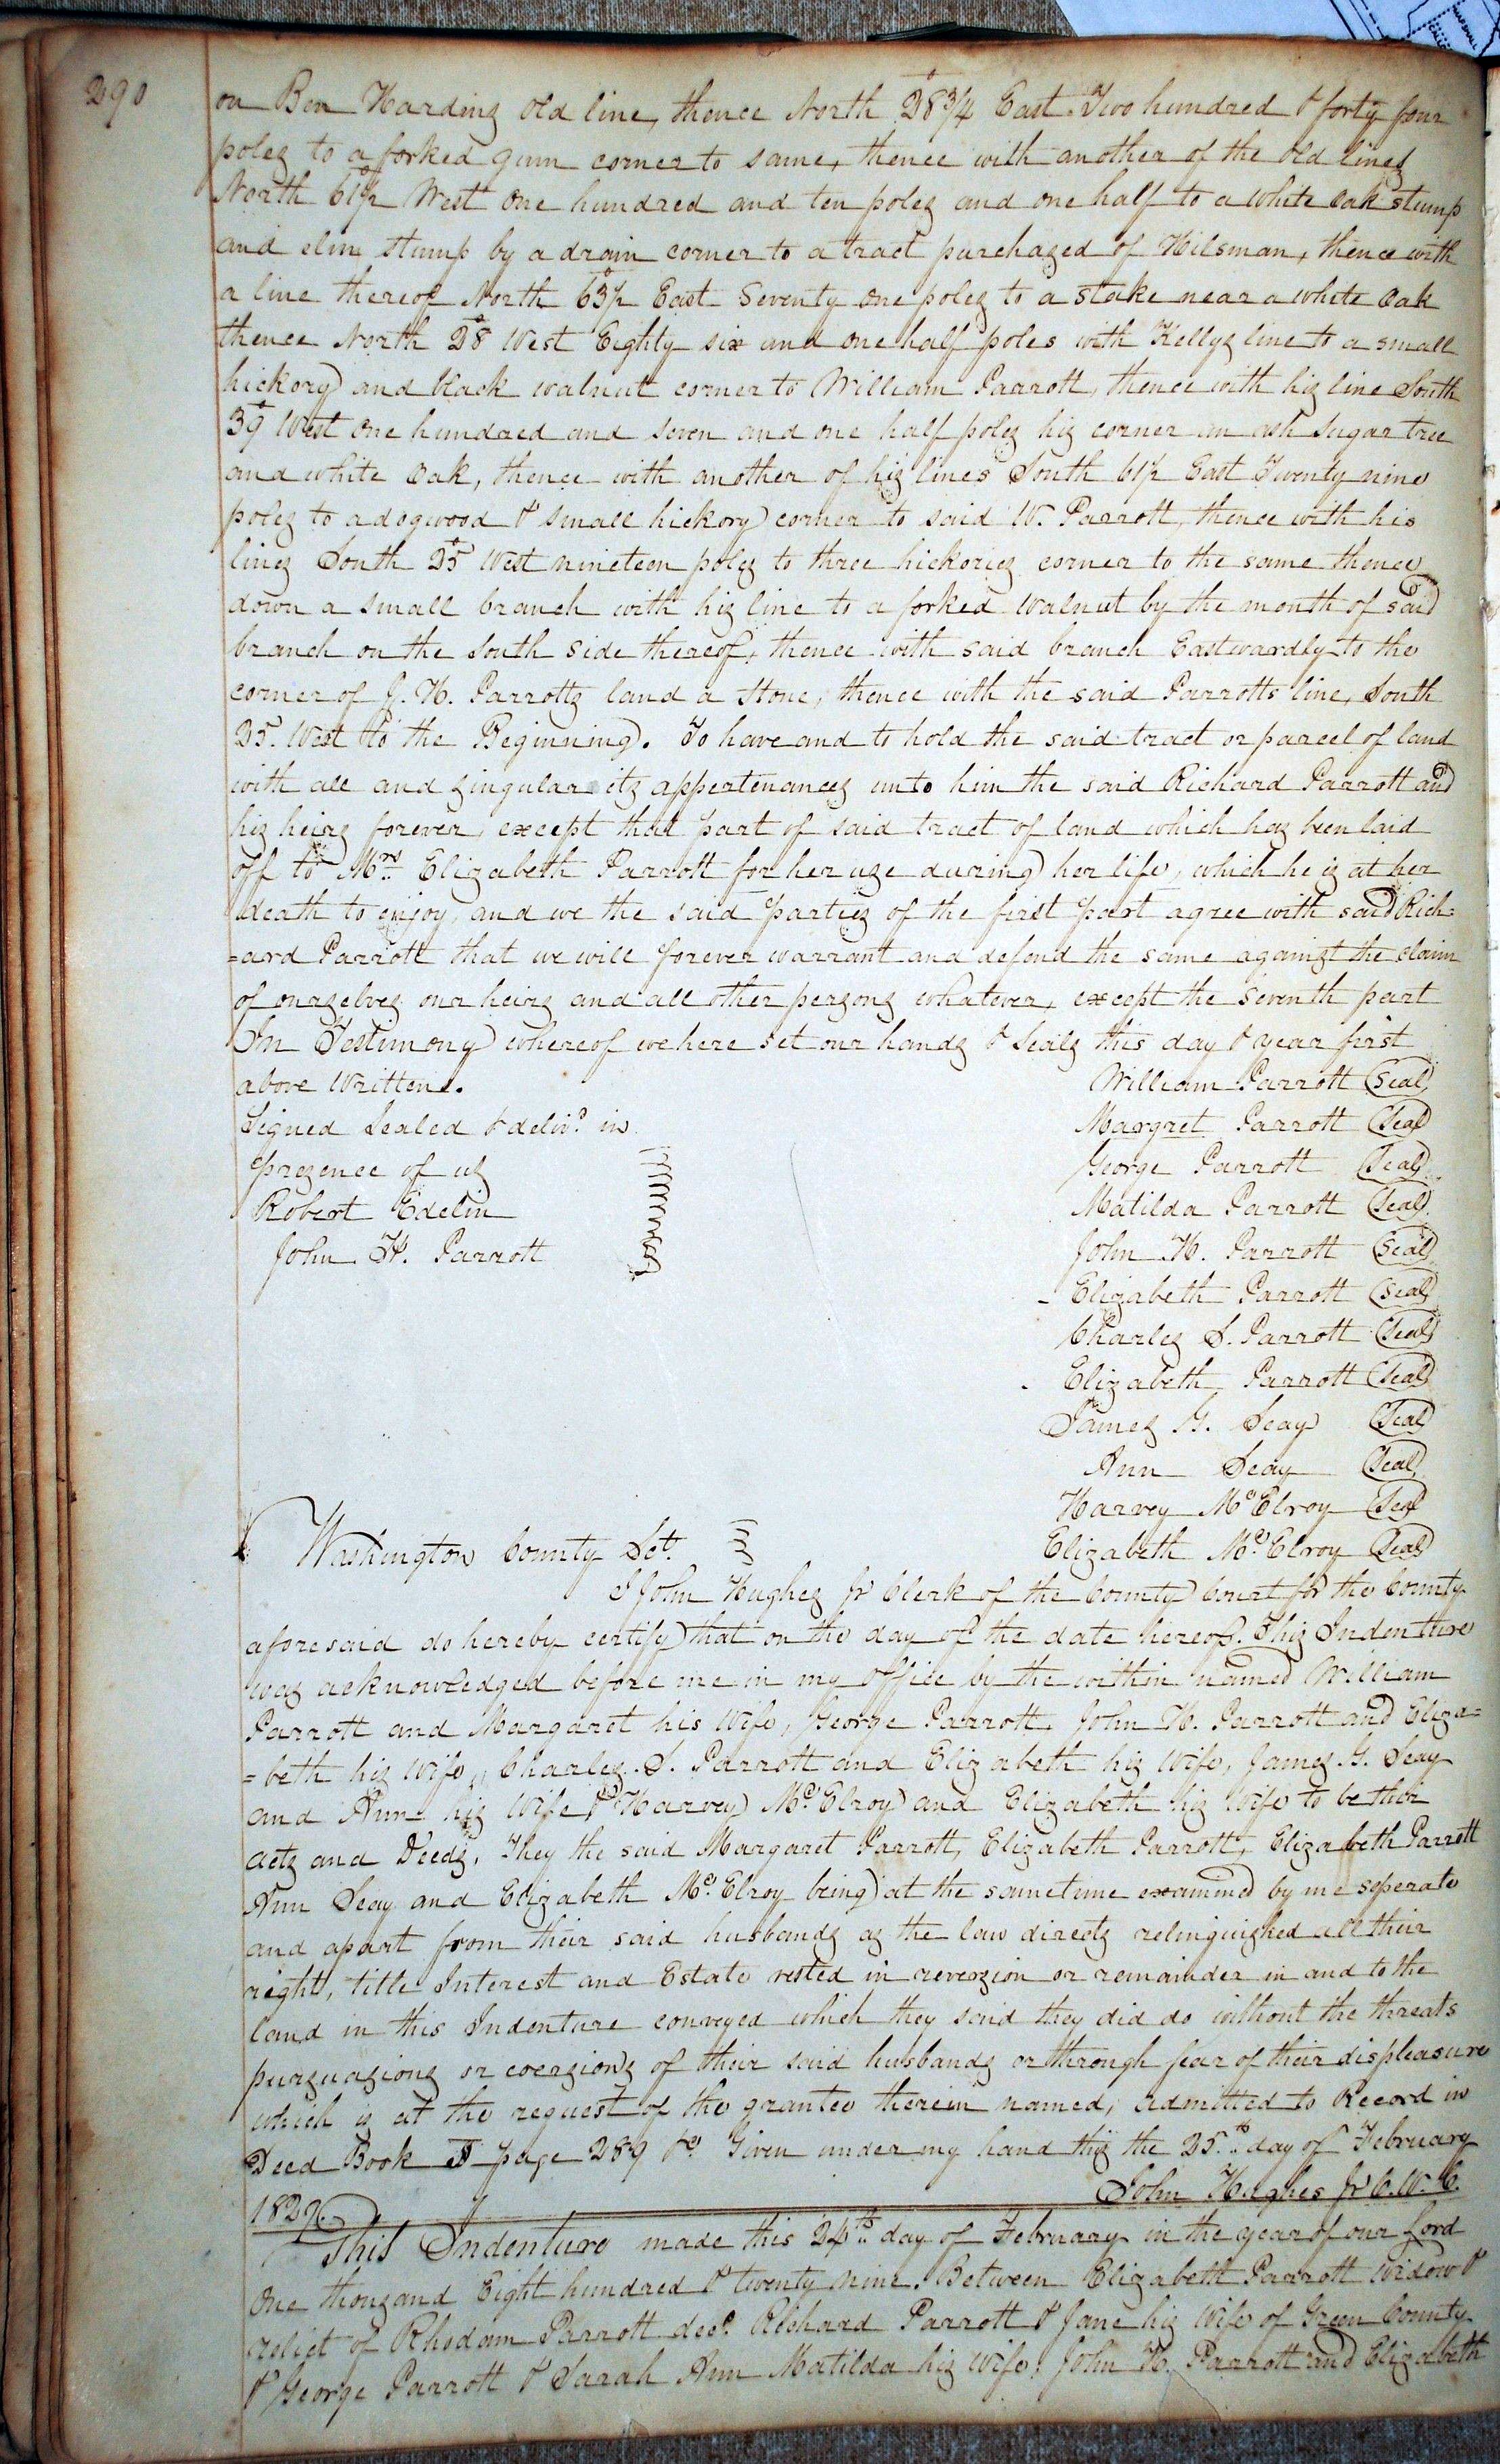 290
on Ben Harding old line, thence North 28 3/4 East Two hundred & forty four
poles to a forked gum corner to same, thence with another of the old lines
North 61 1/2 West One hundred and ten poles and one half to a white Oak stump
and elm stump by a drain corner to a tract purchased of Hilsman, thence with
a line thereof North 63 1/2 East Seventy one poles to a stake near a white Oak
thence North 28 West Eighty six and one half poles with Kellys line to a small
hickory and black walnut corner to William Parrott, thence with his line South
39 West one hundred and seven and one half poles his corner an ash Sugar tree
and white Oak, thence with another of his lines South 61 1/2 East Twenty nine
poles to a dogwood & small hickory corner to said W. Parrott, thence with his
lines South 25 West nineteen poles to three hickories corner to the same thence
down a small branch with his line to a forked Walnut by the mouth of said
branch on the South side thereof, thence with said branch Eastwardly to the
corner of J. H. Parrotts land a Stone, thence with the said Parrotts line, South
25. West to the Beginning. To have and to hold the said tract or parcel of land
with all and singular its appertenances unto him the said Richard Parrott and
his heirs forever, except that part of said tract of land which has been laid
off to Mrs. Elizabeth Parrott for her use during her life, which he is at her
death to enjoy, and we the said parties of the first part agree with said Rich=
=ard Parrott that we will forever warrant and defend the same against the claim
of ourselves our heirs and all other persons whatever, except the seventh part
In Testimony whereof we here set our hands & Seals this day & year first
above Written.
William Parrott (Seal)
Signed Sealed & delivd. in
Margret Parrott (Seal)
presence of us
George Parrott (Seal)
Robert Edelin
Matilda Parrott (Seal)
John H. Parrott
John H. Parrott (Seal)
Elizabeth Parrott (Seal)
Charles S. Parrott (Seal)
Elizabeth Parrott (Seal)
James G. Seay (Seal)
Ann Seay (Seal)
Harvey McElroy (Seal)
Washington County Sct.
Elizabeth McElroy (Seal)
I John Hughes Jr Clerk of the County Court for the County
aforesaid do hereby certify that on the day of the date hereof. This Indenture
was acknowledged before me in my office by the within named William
Parrott and Margaret his Wife, George Parrott. John H. Parrott and Eliza=
=beth his Wife, Charles. S. Parrott and Elizabeth his Wife, James. G. Seay
and Ann his Wife & Harvey McElroy and Elizabeth his Wife to be their
acts and Deeds. They the said Margaret Parrott, Elizabeth Parrott, Elizabeth Parrott
Ann Seay and Elizabeth McElroy being at the sametime examined by me seperate
and apart from their said husbands as the law directs relinquished all their
right, title Interest and Estate vested in reversion or remainder in and to the
land in this Indenture conveyed which they said they did do without the threats
pursuasions or coersions of their said husbands or through fear of their displeasure
which is at the request of the grantee therein named, admitted to Record in
Deed Book page 289 &c. Given under my hand this the 25.th day of February
1829.
John Hughes Jr C.W.C.
This Indenture made this 24th. day of February in the year of our Lord
One thousand Eight hundred & twenty nine. Between Elizabeth Parrott Widow &
relict of Rhodam Parrott decd. Richard Parrott & Jane his Wife of Green County
& George Parrott & Sarah Ann Matilda his Wife, John H. Parrott and Elizabeth